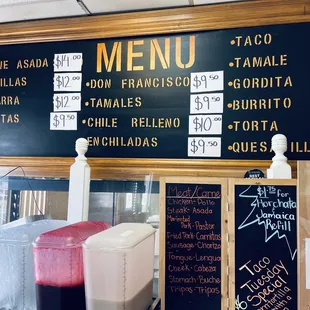 MENU
UE ASADA $14.00
ILLAS $12.00
ARRA $12.00
TAS $9.50
•DON FRANCISCO $9.50
•TAMALES $9.50
•CHILE RELLENO $10.00
ENCHILADAS $9.50
•TACO
•TAMALE
•GORDITA
•BURRITO
•TORTA
•QUES
Meat/Carne
Chicken-Pollo
Steak-Asada
Marinated Pork
Pastor
Fried Pork-
Carnitas
Sausage-Chorizo
Tongue-Lengua
Cheek-Cabeza
Tripas
Horchata &
Jamaica
Refill
Taco
Tuesday
Special